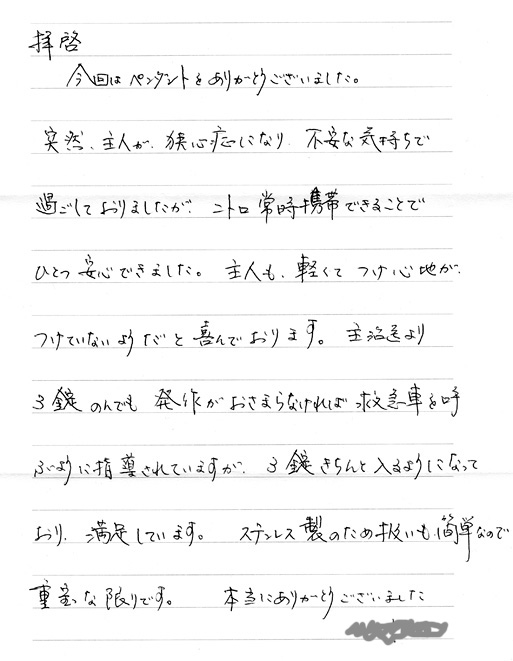 拝啓
今回はペンダントをありがとうございました。
突然、主人が、狭心症になり、不安な気持ちで
過ごしておりましたが、ニトロ常時携帯できることで
ひとつ安心できました。主人も、軽くてつけ心地が、
つけていないようだと喜んでおります。主治医より
3錠のんでも発作がおさまらなければ救急車を呼
ぶように指導されていますが、3錠きちんと入るようになって
おり、満足しています。ステンレス製のため扱いも簡単なので
重宝な限りです。本当にありがとうございました